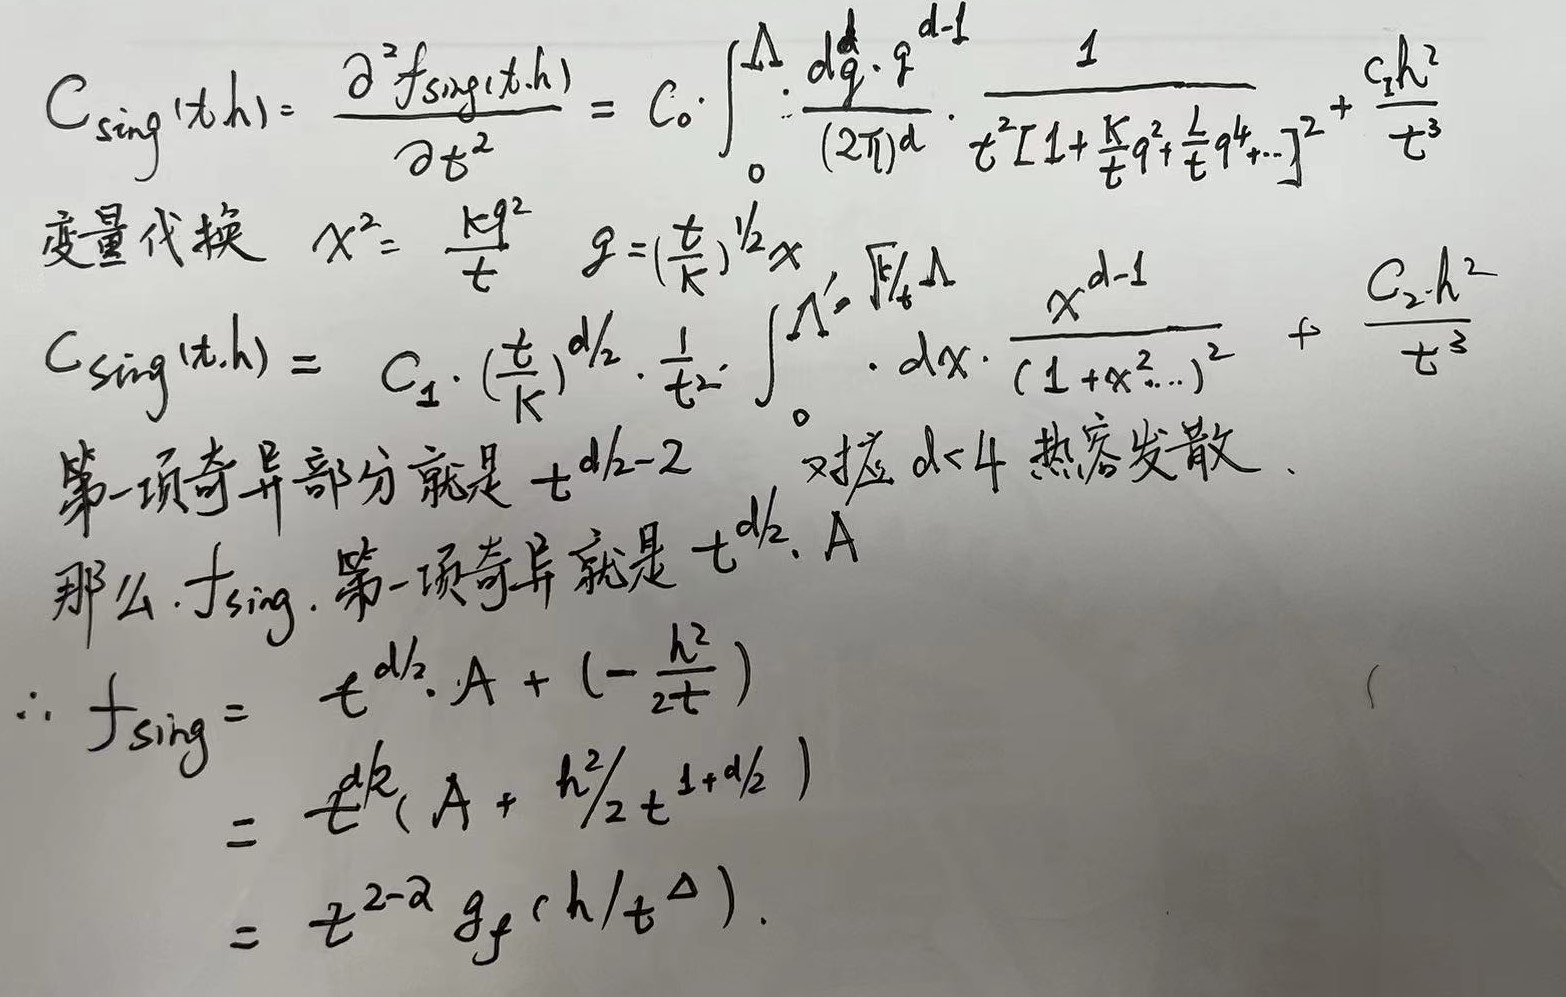 C_sing(t.h) = ∂²f_sing(t.h)/∂t² = C₀·∫₀^Λ d^d q·q^{d-1}/(2π)^d · 1/(t²[1+K/t q²+L/t q⁴+...]²) + C₁h²/t³
变量代换 x² = Kq²/t q = (t/K)^{1/2} x
C_sing(t.h) = C₁·(t/K)^{d/2}·1/t²·∫₀^{Λ'=√(K/t)Λ}·dx·x^{d-1}/(1+x²...)² + C₂·h²/t³
第一项奇异部分就是 t^{d/2-2} 对应 d<4 热容发散.
那么.f_sing.第一项奇异就是 t^{d/2}.A
∴ f_sing = t^{d/2}.A + (-h²/2t)
= t^{d/2}(A + h²/2t^{1+d/2})
= t^{2-α} g_f(h/t^Δ).